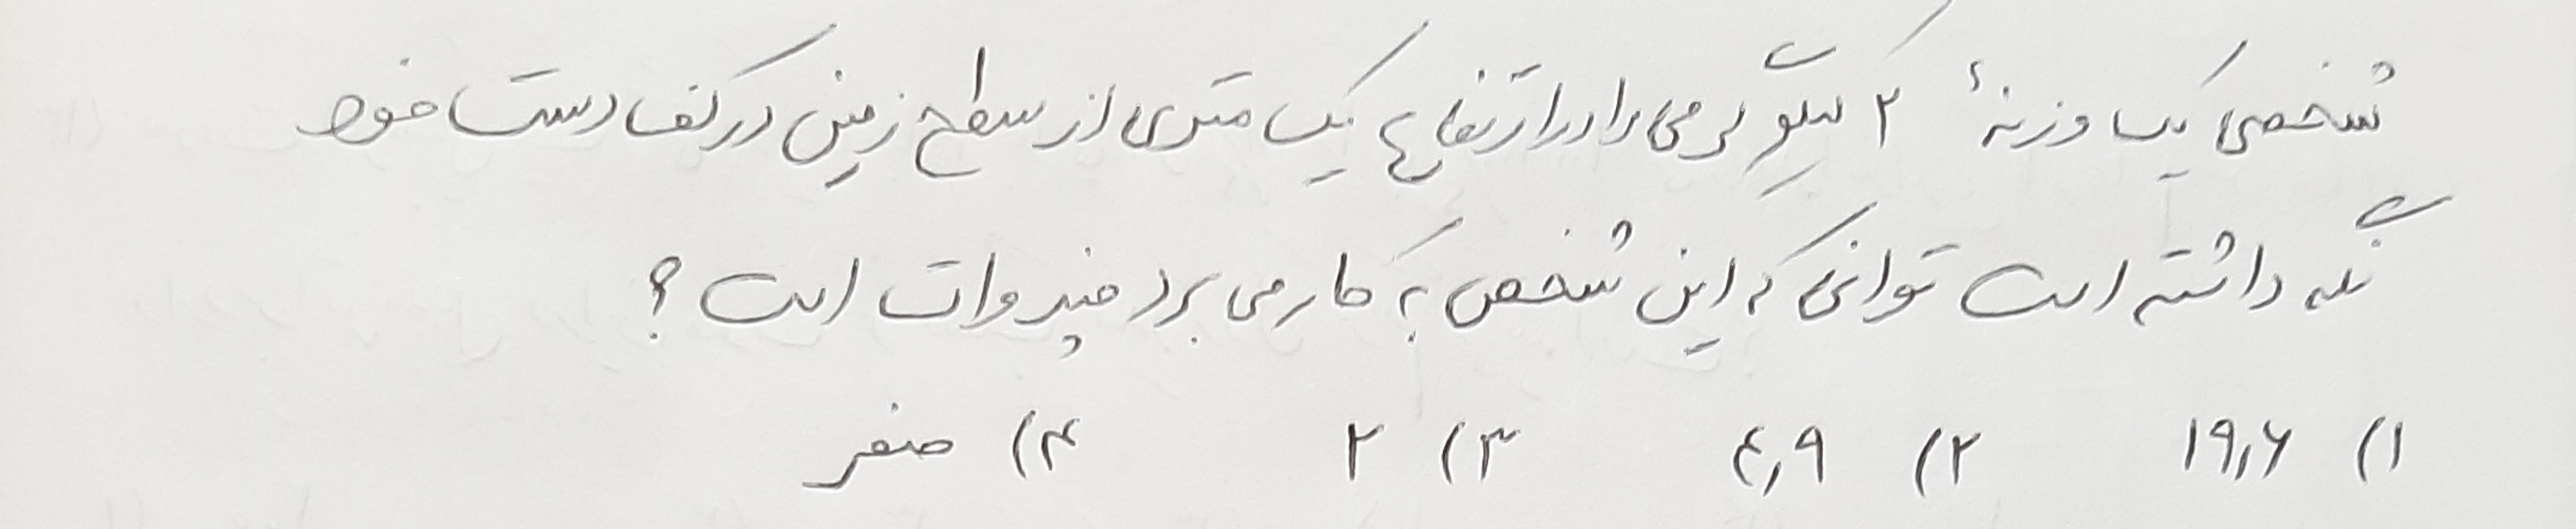 شخصی یک وزنهٔ ۲ کیلوگرمی را در ارتفاع یک متری از سطح زمین در کف دست خود
نگه داشته است توانی که این شخص به کار می برد چند وات است ؟
۱) ۱۹٫۶ ۲) ۴٫۹ ۳) ۲ ۴) صفر